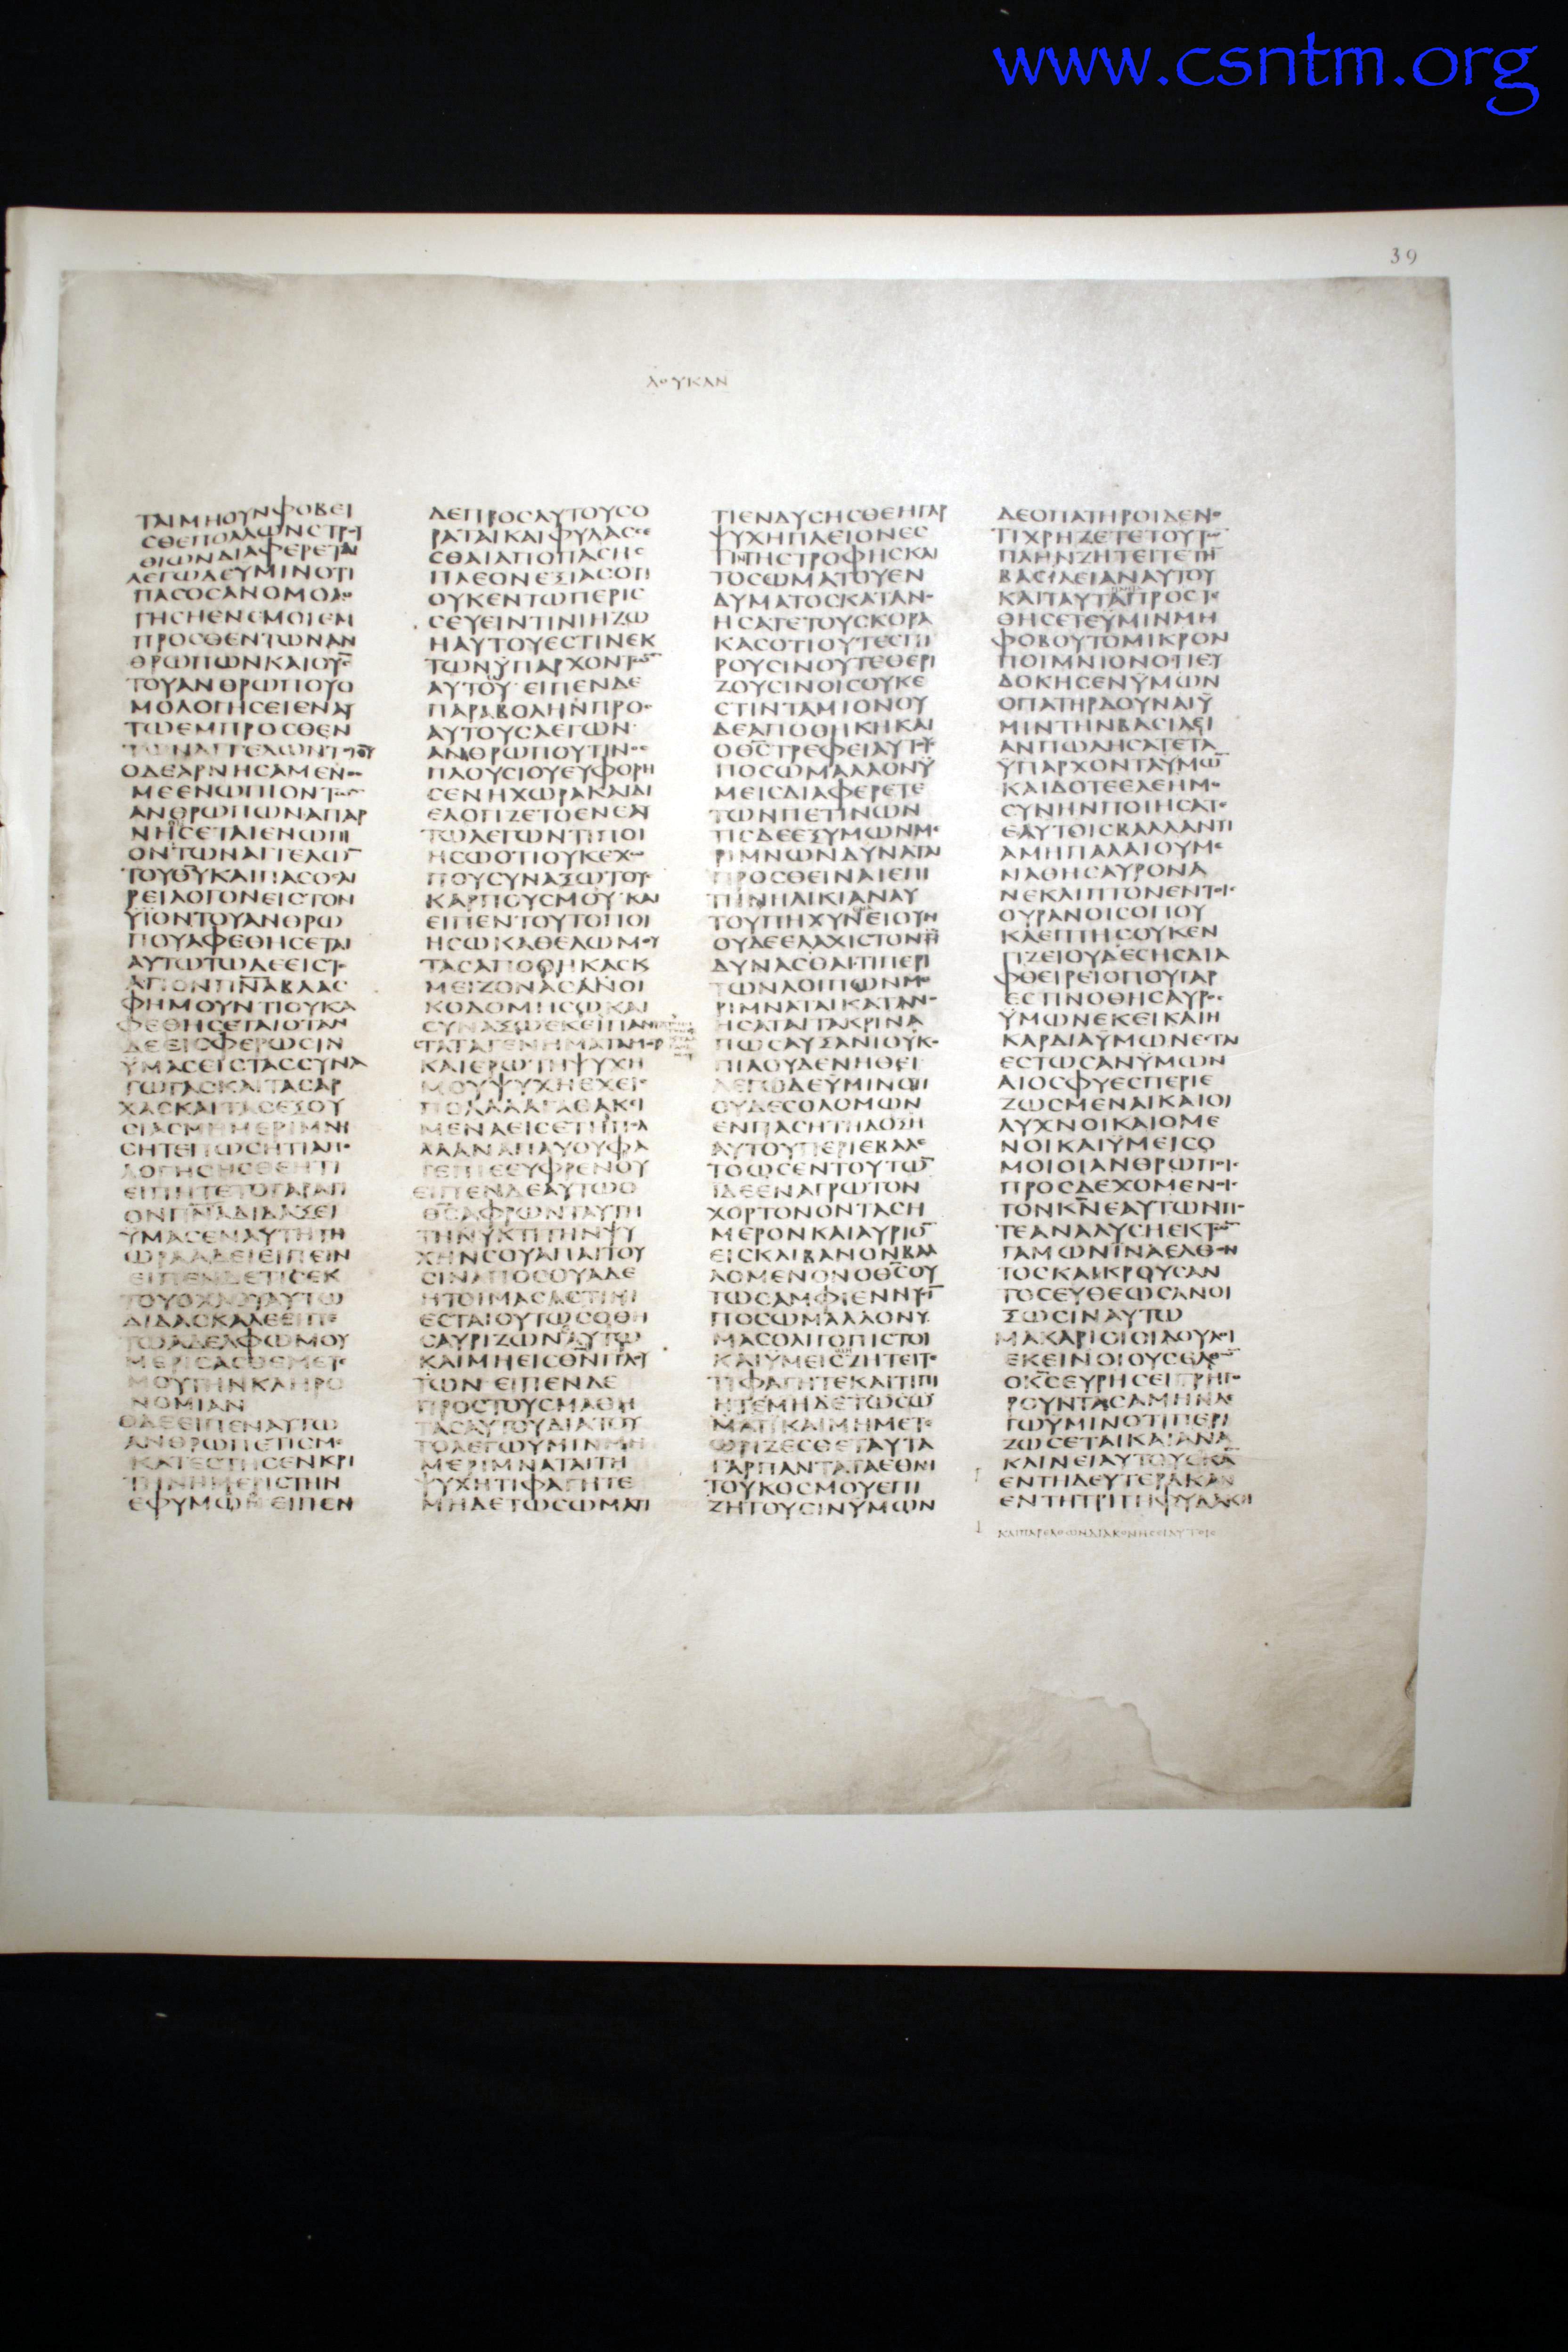 www.csntm.org
39
ΛΟΥΚΑΝ
ΤΑΙΜΗΟΥΝΦΟΒΕΙ
ΛΕΓΩΔΕΥΜΙΝΟΤΙ
ΠΑСΟСΑΝΟΜΟΛΟ
ΓΗСΗΕΝΕΜΟΙΕΜ
ΠΡΟСΘΕΝΤΩΝΑΝ
ΘΡΩΠΩΝΚΑΙΟΥС
ΤΟΥΑΝΘΡΩΠΟΥΟ
ΜΟΛΟΓΗСΕΙΕΝΑΥ
ΤΩΕΜΠΡΟСΘΕΝ
ΟΔΕΑΡΝΗСΑΜΕΝΟС
ΜΕΕΝΩΠΙΟΝΤΩΝ
ΑΝΘΡΩΠΩΝΑΠΑΡ
ΝΗСΕΤΑΙΕΝΩΠΙ
ΟΝΤΩΝΑΓΓΕΛΩ
ΤΟΥΘΥΚΑΙΠΑСΟСΑΙ
ΡΕΙΛΟΓΟΝΕΙСΤΟΝ
ΫΙΟΝΤΟΥΑΝΘΡΩ
ΠΟΥΑΦΕΘΗСΕΤΑΙ
ΑΥΤΩΤΩΔΕΕΙСΤΟ
ΑΓΙΟΝΠΝΑΒΛΑС
ΦΗΜΟΥΝΤΙΟΥΚΑ
ΦΕΘΗСΕΤΑΙΟΤΑΝ
ΔΕΕΙСΦΕΡΩСΙΝ
ΫΜΑСΕΙСΤΑССΥΝΑ
ΓΩΓΑСΚΑΙΤΑСΑΡ
ΧΑСΚΑΙΤΑСΕΞΟΥ
СΙΑСΜΗΜΕΡΙΜΝΙ
СΗΤΕΠΩСΗΤΙΑΠΟ
ΛΟΓΗСΗСΘΕΗΤΙ
ΕΙΠΗΤΕΤΟΓΑΡΑΓΙ
ΟΝΠΝΑΔΙΔΑΞΕΙ
ΫΜΑСΕΝΑΥΤΗΤΗ
ΩΡΑΑΔΕΙΕΙΠΕΙΝ
ΕΙΠΕΝΔΕΤΙСΕΚ
ΤΟΥΟΧΛΟΥΑΥΤΩ
ΔΙΔΑСΚΑΛΕΕΙΠΕ
ΤΩΑΔΕΛΦΩΜΟΥ
ΜΕΡΙСΑСΘΕΜΕΤ
ΜΟΥΤΗΝΚΛΗΡΟ
ΝΟΜΙΑΝ
ΟΔΕΕΙΠΕΝΑΥΤΩ
ΑΝΘΡΩΠΕΤΙСΜΕ
ΚΑΤΕСΤΗСΕΝΚΡΙ
ΤΗΝΗΜΕΡΙСΤΗΝ
ΕΦΥΜΩΝ ΕΙΠΕΝ
ΔΕΠΡΟСΑΥΤΟΥСΟ
ΡΑΤΑΙΚΑΙΦΥΛΑССΕ
СΘΑΙΑΠΟΠΑСΗС
ΠΛΕΟΝΕΞΙΑСΟΤΙ
ΟΥΚΕΝΤΩΠΕΡΙС
СΕΥΕΙΝΤΙΝΙΗΖΩ
ΗΑΥΤΟΥΕСΤΙΝΕΚ
ΤΩΝΫΠΑΡΧΟΝΤΩ
ΑΥΤΟΥ ΕΙΠΕΝΔΕ
ΠΑΡΑΒΟΛΗΝΠΡΟС
ΑΥΤΟΥСΛΕΓΩΝ
ΑΝΘΡΩΠΟΥΤΙΝΟС
ΠΛΟΥСΙΟΥΕΥΦΟΡΗ
СΕΝΗΧΩΡΑΚΑΙΔΙ
ΕΛΟΓΙΖΕΤΟΕΝΕΑΥ
ΤΩΛΕΓΩΝΤΙΠΟΙ
ΗСΩΟΤΙΟΥΚΕΧΩ
ΠΟΥСΥΝΑΞΩΤΟΥС
ΚΑΡΠΟΥСΜΟΥ ΚΑΙ
ΕΙΠΕΝΤΟΥΤΟΠΟΙ
ΗСΩΚΑΘΕΛΩΜΟΥ
ΤΑСΑΠΟΘΗΚΑСΚ
ΜΕΙΖΟΝΑСΑΝΟΙ
ΚΟΔΟΜΗСΩΚΑΙ
СΥΝΑΞΩΕΚΕΙΠΑΝ
ΤΑΤΑΓΕΝΗΜΑΤΑΜΟΥ
ΚΑΙΕΡΩΤΗΨΥΧΗ
ΜΟΥΨΥΧΗΕΧΕΙС
ΠΟΛΛΑΑΓΑΘΑΚΙ
ΜΕΝΑΕΙСΕΤΗΠΟΛ
ΛΑΑΝΑΠΑΥΟΥΦΑ
ΓΕΠΙΕΕΥΦΡΕΝΟΥ
ΕΙΠΕΝΔΕΑΥΤΩΟ
ΘСΑΦΡΩΝΤΑΥΤΗ
ΤΗΝΥΚΤΙΤΗΝΨΥ
ΧΗΝСΟΥΑΠΑΙΤΟΥ
СΙΝΑΠΟСΟΥΑΔΕ
ΗΤΟΙΜΑСΑСΤΙΝΙ
ΕСΤΑΙΟΥΤΩСΟΘΗ
СΑΥΡΙΖΩΝΑΥΤΩ
ΚΑΙΜΗΕΙСΘΝΠΛΟΥ
ΤΩΝ ΕΙΠΕΝΔΕ
ΠΡΟСΤΟΥСΜΑΘΗ
ΤΑСΑΥΤΟΥΔΙΑΤΟΥ
ΤΟΛΕΓΩΫΜΙΝΜΗ
ΜΕΡΙΜΝΑΤΑΙΤΗ
ΨΥΧΗΤΙΦΑΓΗΤΕ
ΜΗΔΕΤΩСΩΜΑΤΙ
ΤΙΕΝΔΥСΗСΘΕΗΓΑΡ
ΨΥΧΗΠΛΕΙΟΝΕС
ΤΙΝΤΗСΤΡΟΦΗСΚΑΙ
ΤΟСΩΜΑΤΟΥΕΝ
ΔΥΜΑΤΟСΚΑΤΑΝΟ
ΗСΑΤΕΤΟΥСΚΟΡΑ
ΚΑСΟΤΙΟΥΤΕСΠΙ
ΡΟΥСΙΝΟΥΤΕΘΕΡΙ
ΖΟΥСΙΝΟΙСΟΥΚΕ
СΤΙΝΤΑΜΙΟΝΟΥ
ΔΕΑΠΟΘΗΚΗΚΑΙ
ΟΘСΤΡΕΦΕΙΑΥΤΟΥС
ΠΟСΩΜΑΛΛΟΝΫ
ΜΕΙСΔΙΑΦΕΡΕΤΕ
ΤΩΝΠΕΤΙΝΩΝ
ΤΙСΔΕΕΞΥΜΩΝΜΕ
ΡΙΜΝΩΝΔΥΝΑΤΑΙ
ΠΡΟСΘΕΙΝΑΙΕΠΙ
ΤΗΝΗΛΙΚΙΑΝΑΥ
ΤΟΥΠΗΧΥΝΕΙΟΥΝ
ΟΥΔΕΕΛΑΧΙСΤΟΝΤΙ
ΔΥΝΑСΘΑΙΤΙΠΕΡΙ
ΤΩΝΛΟΙΠΩΝΜΕ
ΡΙΜΝΑΤΑΙΚΑΤΑΝΟ
ΗСΑΤΑΙΤΑΚΡΙΝΑ
ΠΩСΑΥΞΑΝΙΟΥΚΟ
ΠΙΑΟΥΔΕΝΗΘΕΙ
ΛΕΓΩΔΕΫΜΙΝΟΤΙ
ΟΥΔΕСΟΛΟΜΩΝ
ΕΝΠΑСΗΤΗΔΟΞΗ
ΑΥΤΟΥΠΕΡΙΕΒΑΛΕ
ΤΟΩСΕΝΤΟΥΤΩ
ΙΔΕΕΝΑΓΡΩΤΟΝ
ΧΟΡΤΟΝΟΝΤΑСΗ
ΜΕΡΟΝΚΑΙΑΥΡΙΟ
ΕΙСΚΛΙΒΑΝΟΝΒΑΛ
ΛΟΜΕΝΟΝΟΘСΟΥ
ΤΩСΑΜΦΙΕΝΝΥСΙ
ΠΟСΩΜΑΛΛΟΝΥ
ΜΑСΟΛΙΓΟΠΙСΤΟΙ
ΚΑΙΫΜΕΙСΖΗΤΕΙΤΕ
ΤΙΦΑΓΗΤΕΚΑΙΤΙΠΙ
ΗΤΕΜΗΔΕΤΩСΩ
ΜΑΤΙΚΑΙΜΗΜΕΤΕ
ΩΡΙΖΕСΘΕΤΑΥΤΑ
ΓΑΡΠΑΝΤΑΤΑΕΘΝΙ
ΤΟΥΚΟСΜΟΥΕΠΙ
ΖΗΤΟΥСΙΝΫΜΩΝ
ΔΕΟΠΑΤΗΡΟΙΔΕΝΟ
ΤΙΧΡΗΖΕΤΕΤΟΥΤΩ
ΠΛΗΝΖΗΤΕΙΤΕΤΗ
ΒΑСΙΛΕΙΑΝΑΥΤΟΥ
ΚΑΙΤΑΥΤΑΠΡΟСΤΕ
ΘΗСΕΤΕΫΜΙΝΜΗ
ΦΟΒΟΥΤΟΜΙΚΡΟΝ
ΠΟΙΜΝΙΟΝΟΤΙΕΥ
ΔΟΚΗСΕΝΫΜΩΝ
ΟΠΑΤΗΡΔΟΥΝΑΙΫ
ΜΙΝΤΗΝΒΑСΙΛΕΙ
ΑΝΠΩΛΗСΑΤΕΤΑ
ΫΠΑΡΧΟΝΤΑΫΜΩ
ΚΑΙΔΟΤΕΕΛΕΗΜΟ
СΥΝΗΝΠΟΙΗСΑΤΕ
ΕΑΥΤΟΙСΒΑΛΛΑΝΤΙ
ΑΜΗΠΑΛΑΙΟΥΜΕ
ΝΑΘΗСΑΥΡΟΝΑ
ΝΕΚΛΙΠΤΟΝΕΝΤΟΙС
ΟΥΡΑΝΟΙСΟΠΟΥ
ΚΛΕΠΤΗСΟΥΚΕΝ
ΓΙΖΕΙΟΥΔΕСΗСΔΙΑ
ΦΘΕΙΡΕΙΟΠΟΥΓΑΡ
ΕСΤΙΝΟΘΗСΑΥΡΟС
ΫΜΩΝΕΚΕΙΚΑΙΗ
ΚΑΡΔΙΑΫΜΩΝΕСΤΑΙ
ΕСΤΩСΑΝΫΜΩΝ
ΑΙΟСΦΥΕСΠΕΡΙΕ
ΖΩСΜΕΝΑΙΚΑΙΟΙ
ΛΥΧΝΟΙΚΑΙΟΜΕ
ΝΟΙΚΑΙΫΜΕΙСΟ
ΜΟΙΟΙΑΝΘΡΩΠΟΙС
ΠΡΟСΔΕΧΟΜΕΝΟΙС
ΤΟΝΚΝΕΑΥΤΩΝΠΟ
ΤΕΑΝΑΛΥСΗΕΚΤΩ
ΓΑΜΩΝΪΝΑΕΛΘΟΝ
ΤΟСΚΑΙΚΡΟΥСΑΝ
ΤΟСΕΥΘΕΩСΑΝΟΙ
ΞΩСΙΝΑΥΤΩ
ΜΑΚΑΡΙΟΙΟΙΔΟΥΛΟΙ
ΕΚΕΙΝΟΙΟΥСΕΛΘΩ
ΟΚСΕΥΡΗСΕΙΓΡΗΓΟ
ΡΟΥΝΤΑСΑΜΗΝΛΕ
ΓΩΫΜΙΝΟΤΙΠΕΡΙ
ΖΩСΕΤΑΙΚΑΙΑΝΑ
ΚΛΙΝΕΙΑΥΤΟΥСΚΑ
ΕΝΤΗΔΕΥΤΕΡΑΚΑΝ
ΕΝΤΗΤΡΙΤΗΦΥΛΑΚΗ
ΚΑΙΠΑΡΕΛΘΩΝΔΙΑΚΟΝΗСΕΙΑΥΤΟΙС